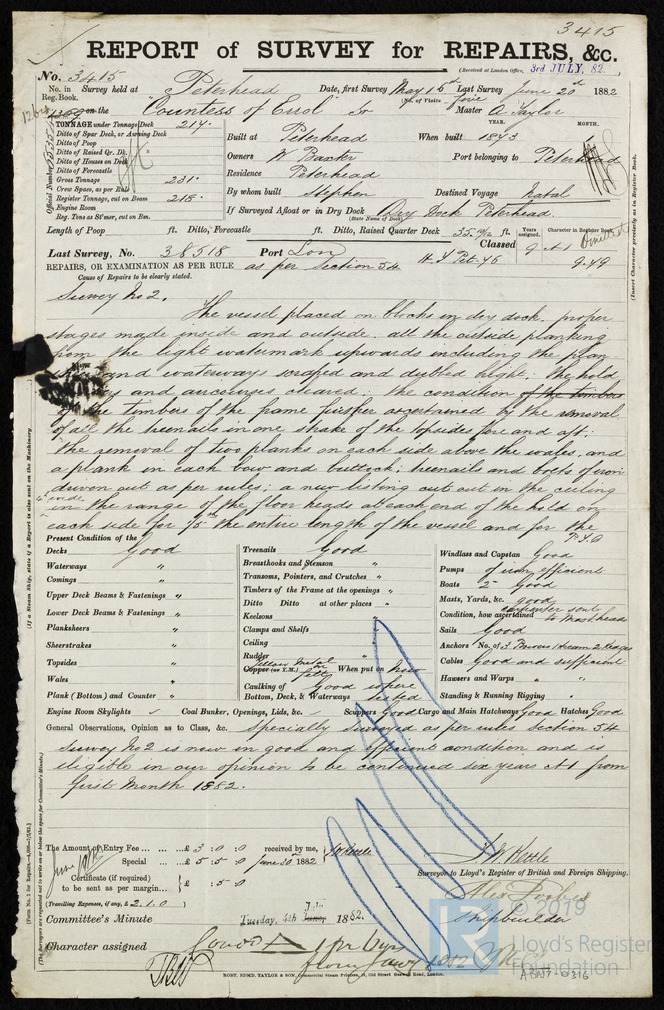 3415
REPORT of SURVEY for REPAIRS, &c.
(Received at London Office, 3rd JULY, 82.)
No. 3415
No. in Reg. Book.
Survey held at Peterhead Date, first Survey May 15th Last Survey June 20th 1882
(No. of Visits five)
on the "Countess of Errol" Master A. Taylor
TONNAGE under Tonnage Deck 214.
Ditto of Spar Deck, or Awning Deck
Ditto of Poop
Ditto of Raised Qr. Dk.
Ditto of Houses on Deck
Ditto of Forecastle
Gross Tonnage 231.
Crew Space, as per Rule
Register Tonnage, cut on Beam 218.
Engine Room
Reg. Tons as St'mer, cut on Bm.
Official Number
YEAR. MONTH.
Built at Peterhead When built 1843
Owners W Baxter Port belonging to Peterhead
Residence Peterhead
By whom built Stephen Destined Voyage Natal
If Surveyed Afloat or in Dry Dock Dry Dock Peterhead.
(State Name of Dock)
Length of Poop ft. Ditto, Forecastle ft. Ditto, Raised Quarter Deck ft.
Years assigned. Character in Register Book.
(Insert Character precisely as in Register Book.
Last Survey, No. 38518 Port Lon Classed
REPAIRS, OR EXAMINATION AS PER RULE as per Section 54
Cause of Repairs to be clearly stated.
Survey No 2.
The vessel placed on blocks in dry dock, proper
stages made inside and outside. all the outside planking
from the light watermark upwards including the plan
and waterways scraped and dubbed bright. The hold
and aircourses cleared; the condition of the timbers
timbers of the frame further ascertained by the removal
of all the treenails in one strake of the topsides fore and aft.
the removal of two planks on each side above the wales, and
a plank in each bow and buttock; treenails and bolts of iron
driven out as per rules; a new listing cut out in the ceiling
in the range of the floor heads at each end of the hold on
each side for 1/5th the entire length of the vessel and for the
P.T.O
(If a Steam Ship, state if a Report is also sent on the Machinery
Present Condition of the
Decks Good
Waterways "
Comings "
Upper Deck Beams & Fastenings "
Lower Deck Beams & Fastenings "
Planksheers "
Sheerstrakes "
Topsides "
Wales "
Plank (Bottom) and Counter "
Treenails Good
Breasthooks and Stemson "
Transoms, Pointers, and Crutches "
Timbers of the Frame at the openings "
Ditto Ditto at other places "
Keelsons "
Clamps and Shelfs "
Ceiling "
Rudder "
Copper (or Y.M.) Yellow Metal on felt When put on New
Caulking of Bottom, Deck, & Waterways Good where tested
Windlass and Capstan Good
Pumps of iron efficient
Boats 2 - Good
Masts, Yards, &c. good
Condition, how ascertained carpenter sent to Masthead
Sails Good
Anchors No. of 3 Bowers 1 Stream 2 Kedges
Cables Good and sufficient
Hawsers and Warps " "
Standing & Running Rigging "
Engine Room Skylights Coal Bunker, Openings, Lids, &c. Scuppers Good Cargo and Main Hatchways Good Hatches Good
General Observations, Opinion as to Class, &c. Specially Surveyed as per rules Section 54
Survey No 2 is now in good and efficient condition and is
eligible in our opinion to be continued six years A1 from
first Month 1882.
The Amount of Entry Fee £ 3 : 0 : 0 received by me,
Special £ 5 : 5 : 0 June 30 1882
Certificate (if required) to be sent as per margin £ : 5 : 0
(Travelling Expenses, if any, £ 2.1.0)
W Kettle
Surveyor to Lloyd's Register of British and Foreign Shipping.
Alex Forbes
Shipbuilder
Committee's Minute Tuesday, 4th July June, 1882.
Character assigned
[Form No. 2 for Repairs.
(The Surveyors are requested not to write on or below the space for Committee's Minute.)
ROBT. EDMD. TAYLOR & SON, Commercial Steam Printers, 19, Old Street Goswell Road, London.
© 2019
Lloyd's Register
Foundation